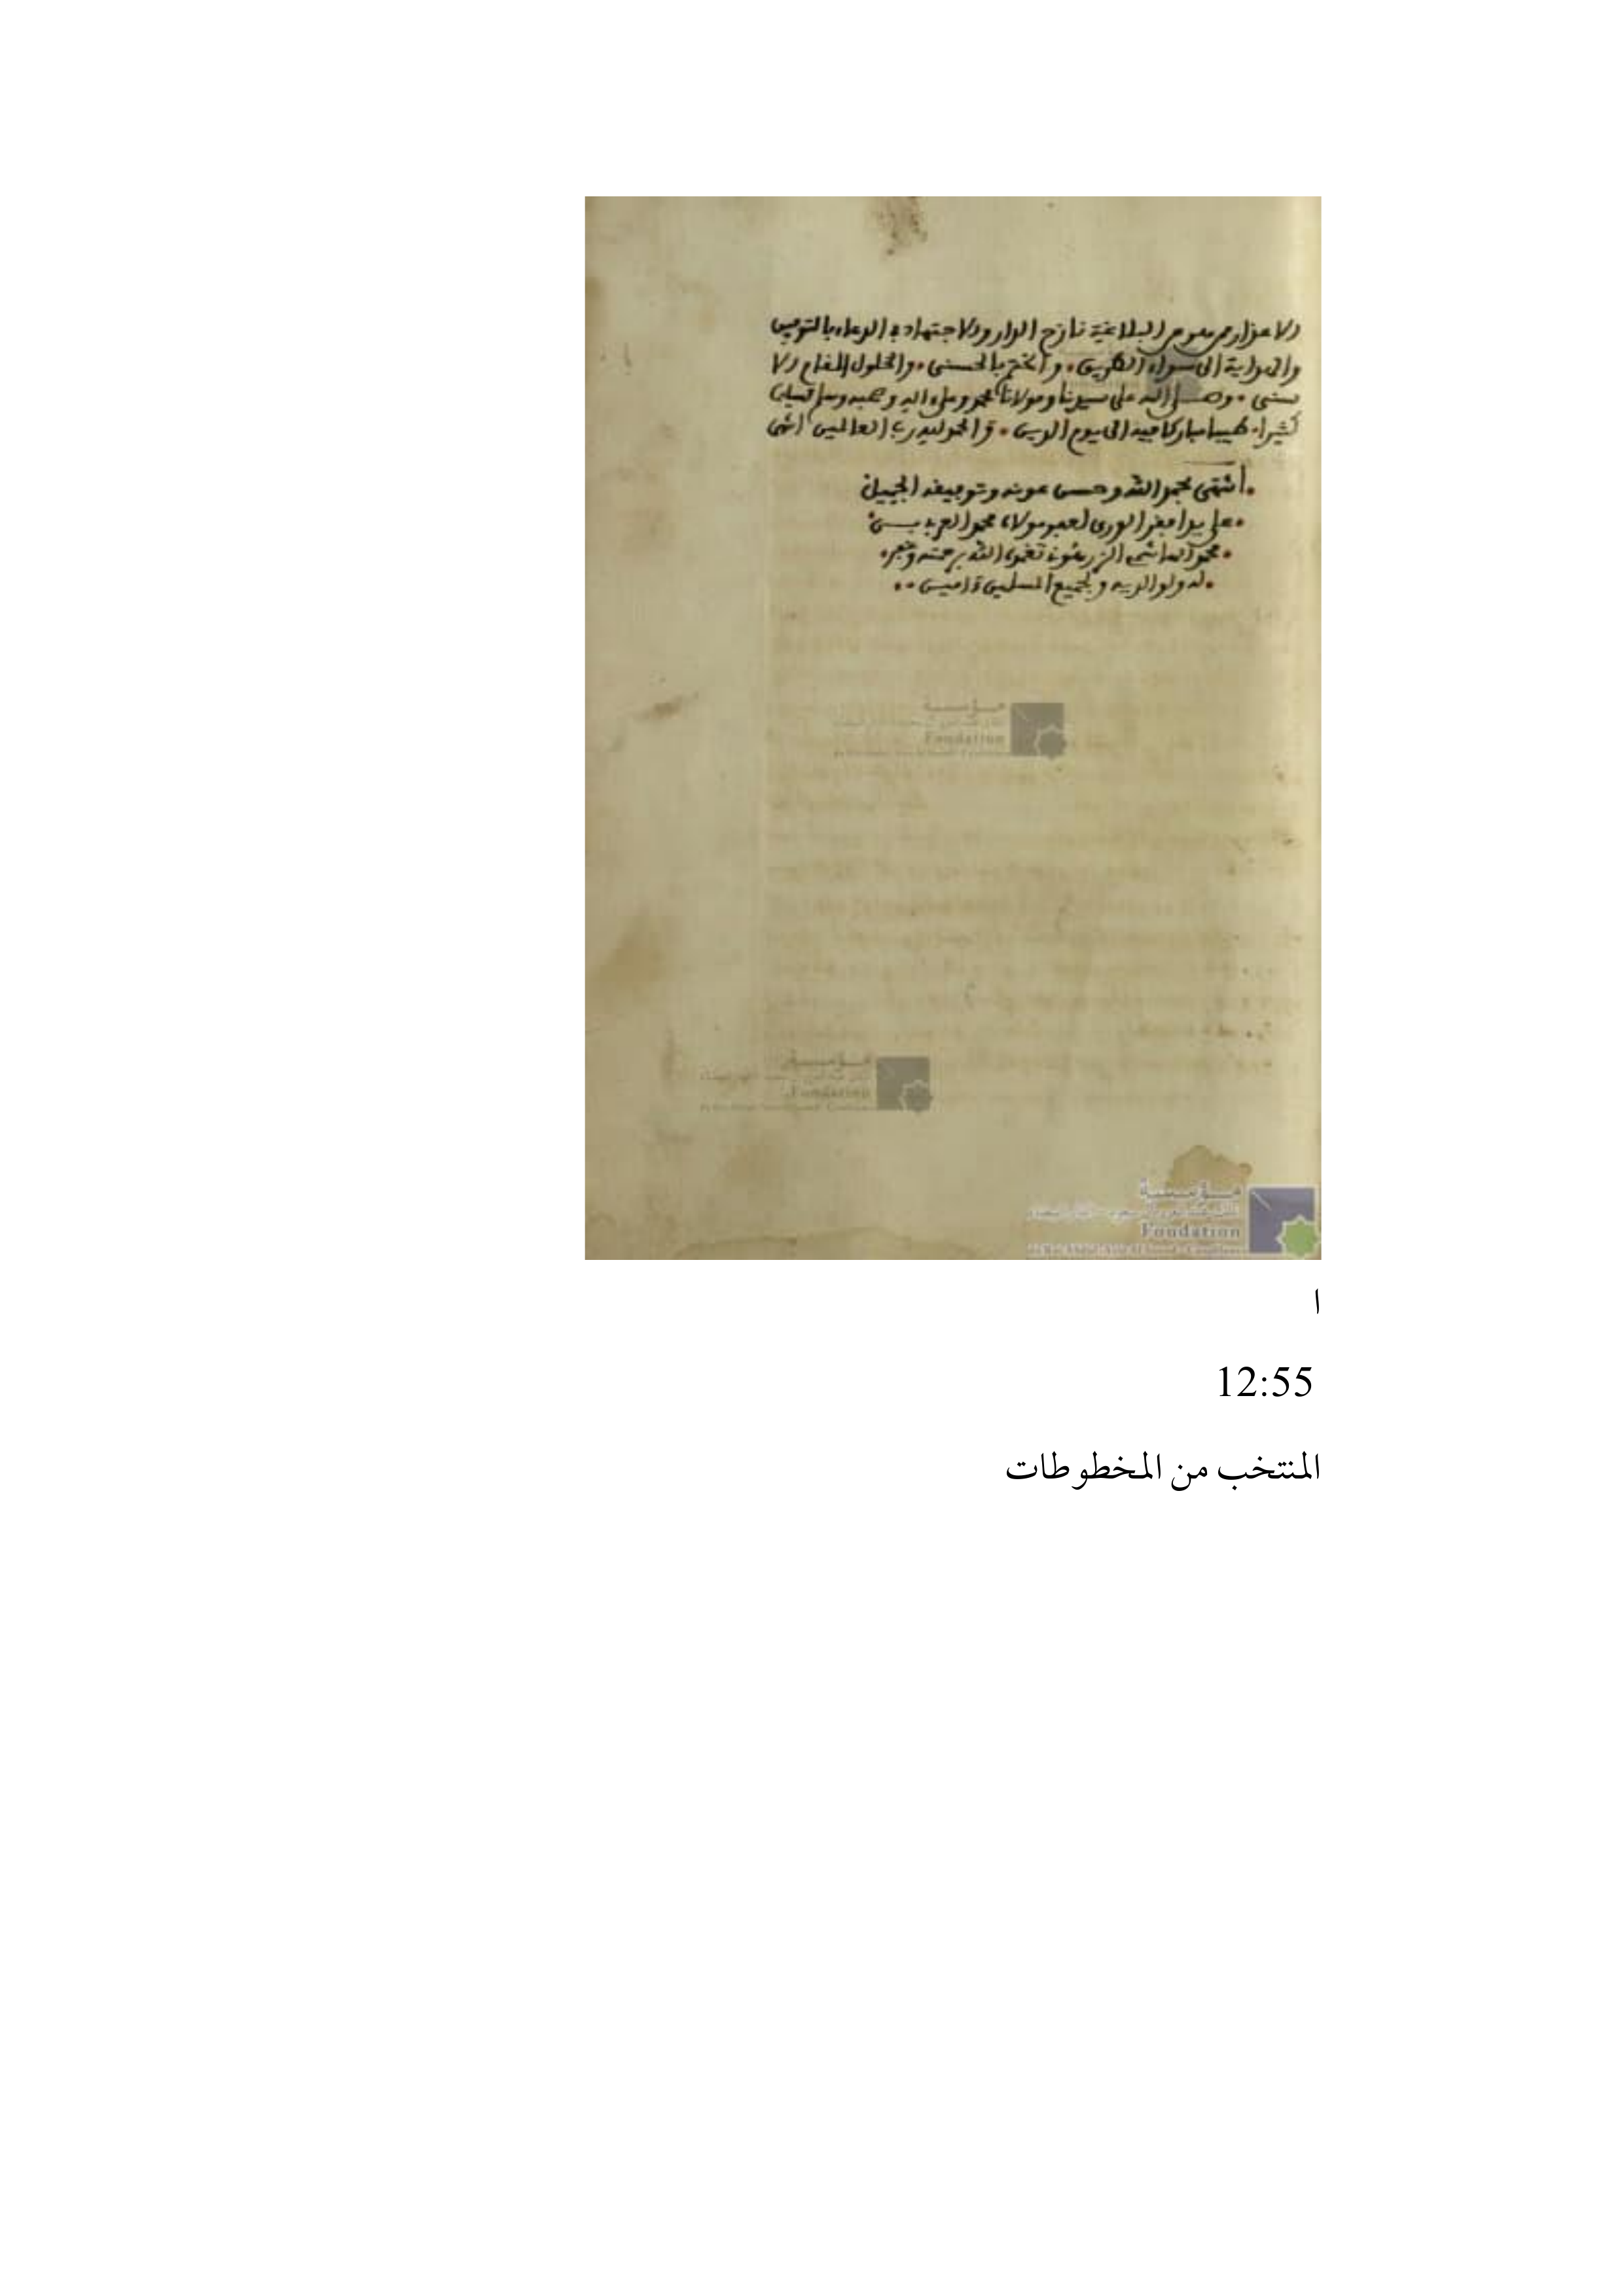 نازح الدار والاجتهاد في الدعاء بالتوفيق
والهداية الى سواء الطريق. والختم بالحسنى. والحلول المقام الا
سنى. وصلى الله على سيدنا ومولانا محمد وعلى اله وصحبه وسلم تسليما
كثيرا. طيبا مباركا فيه الى يوم الدين. والحمد لله رب العالمين انتهى
انتهى بحمد الله وحسن عونه وتوفيقه الجميل
على يد افقر الورى لعفو مولاه محمد العربي بن
محمد الهاشمي الزرهوني تغمده الله برحمته وغفر
له ولوالديه ولجميع المسلمين ءامين
مؤسسة
Foundation
مؤسسة
Foundation
مؤسسة
Foundation
ا
12:55
المنتخب من المخطوطات